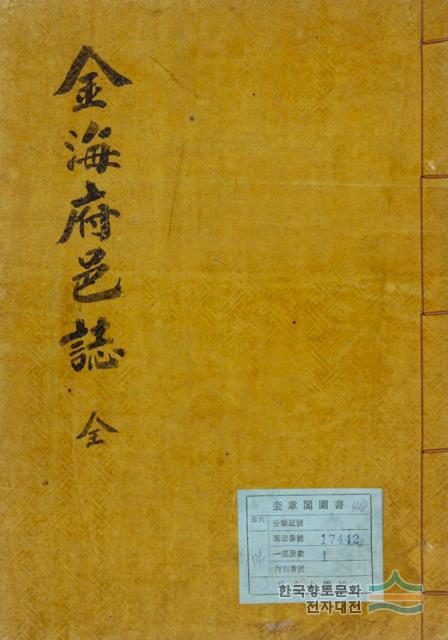 金海府邑誌
全
奎章閣圖書
分類記號
圖書番號 17442
一部冊數 1
內閣番號
한국향토문화
전자대전